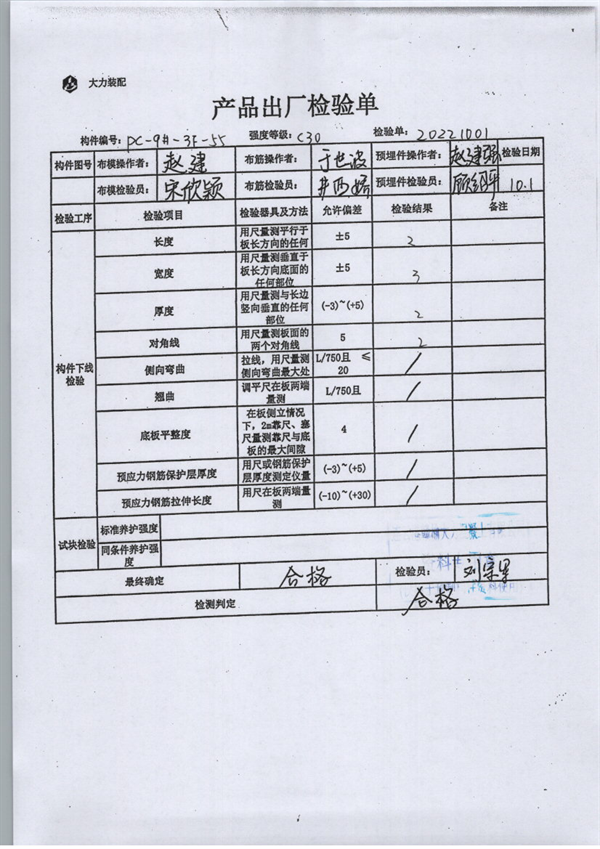 大力装配
产品出厂检验单
构件编号: PC-9#-3F-55 强度等级: C30 检验单: 20221001
构件图号 布模操作者: 赵建 布筋操作者: 于世波 预埋件操作者: 赵建强 检验日期
布模检验员: 宋欣颖 布筋检验员: 预埋件检验员: 10.1
检验工序 检验项目 检验器具及方法 允许偏差 检验结果 备注
构件下线检验
长度 用尺量测平行于板长方向的任何 ±5 2
宽度 用尺量测垂直于板长方向底面的任何部位 ±5 3
厚度 用尺量测与长边竖向垂直的任何部位 (-3)~(+5) 2
对角线 用尺量测板面的两个对角线 5 2
侧向弯曲 拉线，用尺量测侧向弯曲最大处 L/750且 ≤20 /
翘曲 调平尺在板两端量测 L/750且 /
底板平整度 在板侧立情况下，2m靠尺、塞尺量测靠尺与底板的最大间隙 4 /
预应力钢筋保护层厚度 用尺或钢筋保护层厚度测定仪量 (-3)~(+5) /
预应力钢筋拉伸长度 用尺在板两端量测 (-10)~(+30) /
试块检验 标准养护强度
同条件养护强度
最终确定 合格 检验员:
检测判定 合格